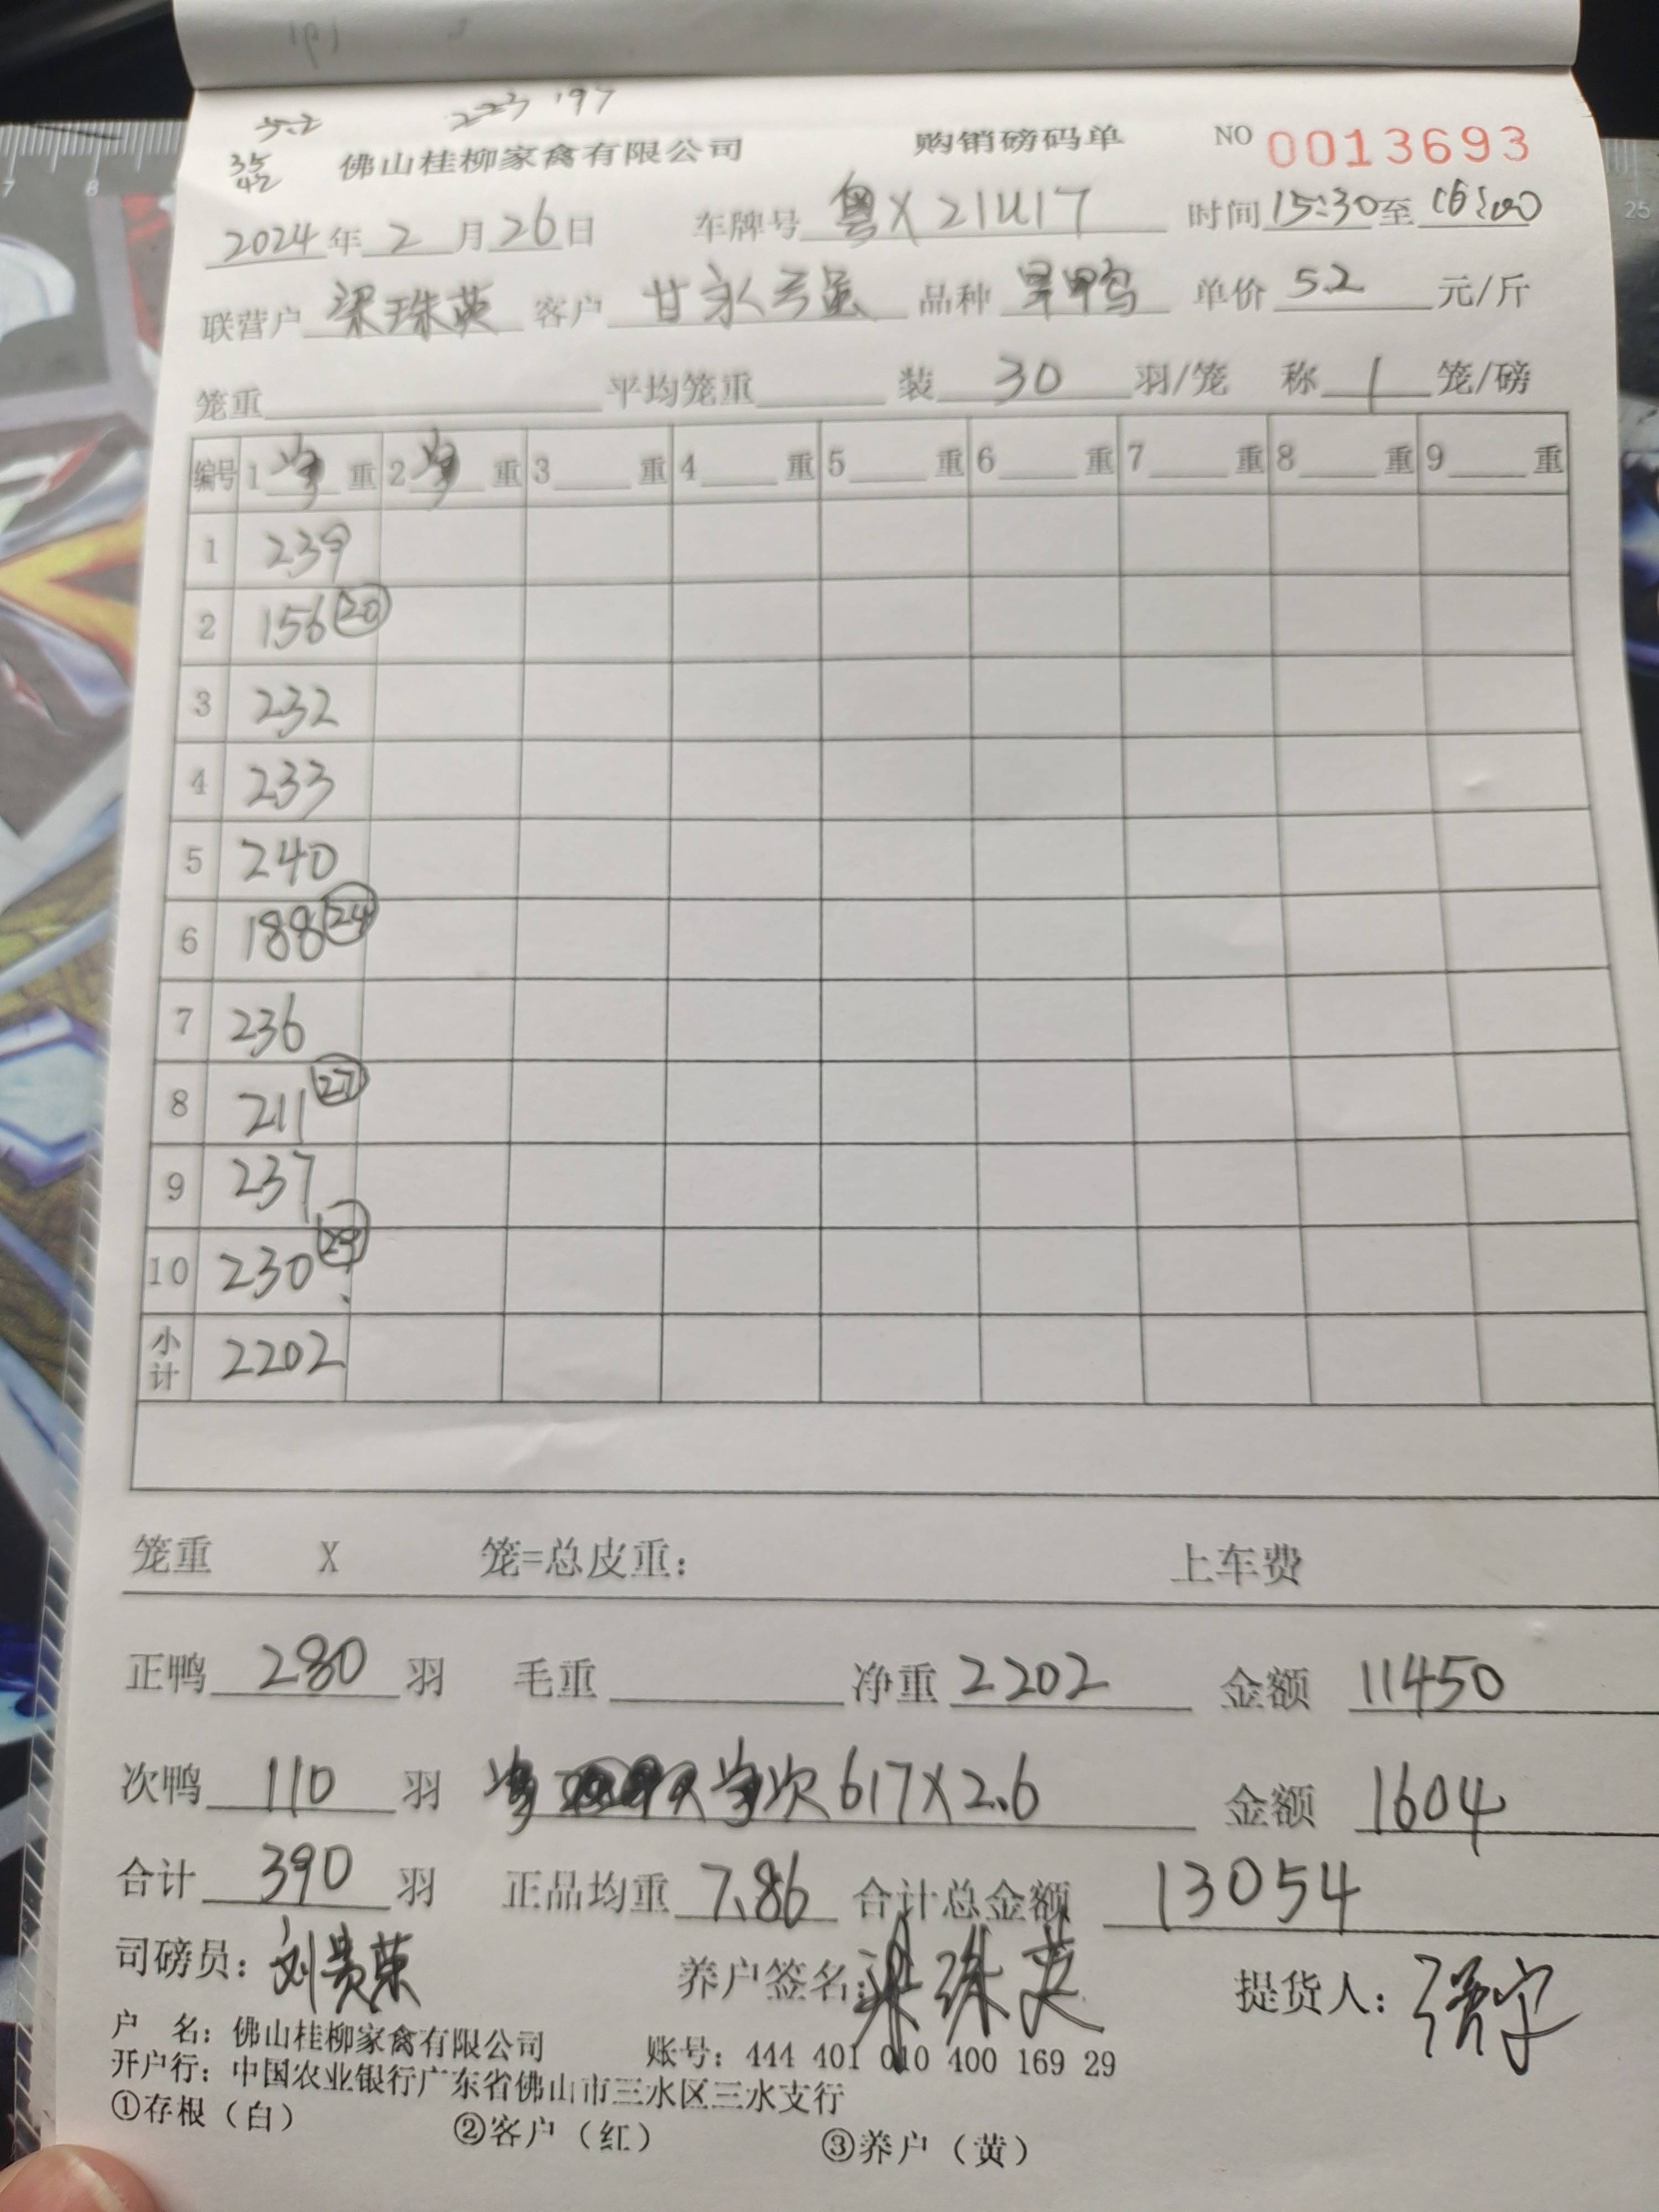 5.2 223 197
35
42 佛山桂柳家禽有限公司 购销磅码单 NO 0013693
2024年2月26日 车牌号 粤X21U17 时间15:30至16:00
联营户 梁珠英 客户 甘永强 品种 旱鸭 单价 5.2 元/斤
笼重 平均笼重 装 30 羽/笼 称 1 笼/磅
编号 1 重 2 重 3 重 4 重 5 重 6 重 7 重 8 重 9 重
1 239
2 156 20
3 232
4 233
5 240
6 188 24
7 236
8 211 27
9 237
10 230 29
小计 2202
笼重 X 笼=总皮重: 上车费
正鸭 280 羽 毛重 净重 2202 金额 11450
次鸭 110 羽 次 617X2.6 金额 1604
合计 390 羽 正品均重 7.86 合计总金额 13054
司磅员: 刘贵荣 养户签名: 梁珠英 提货人:
户 名: 佛山桂柳家禽有限公司 账号: 444 401 010 400 169 29
开户行: 中国农业银行广东省佛山市三水区三水支行
①存根(白) ②客户(红) ③养户(黄)